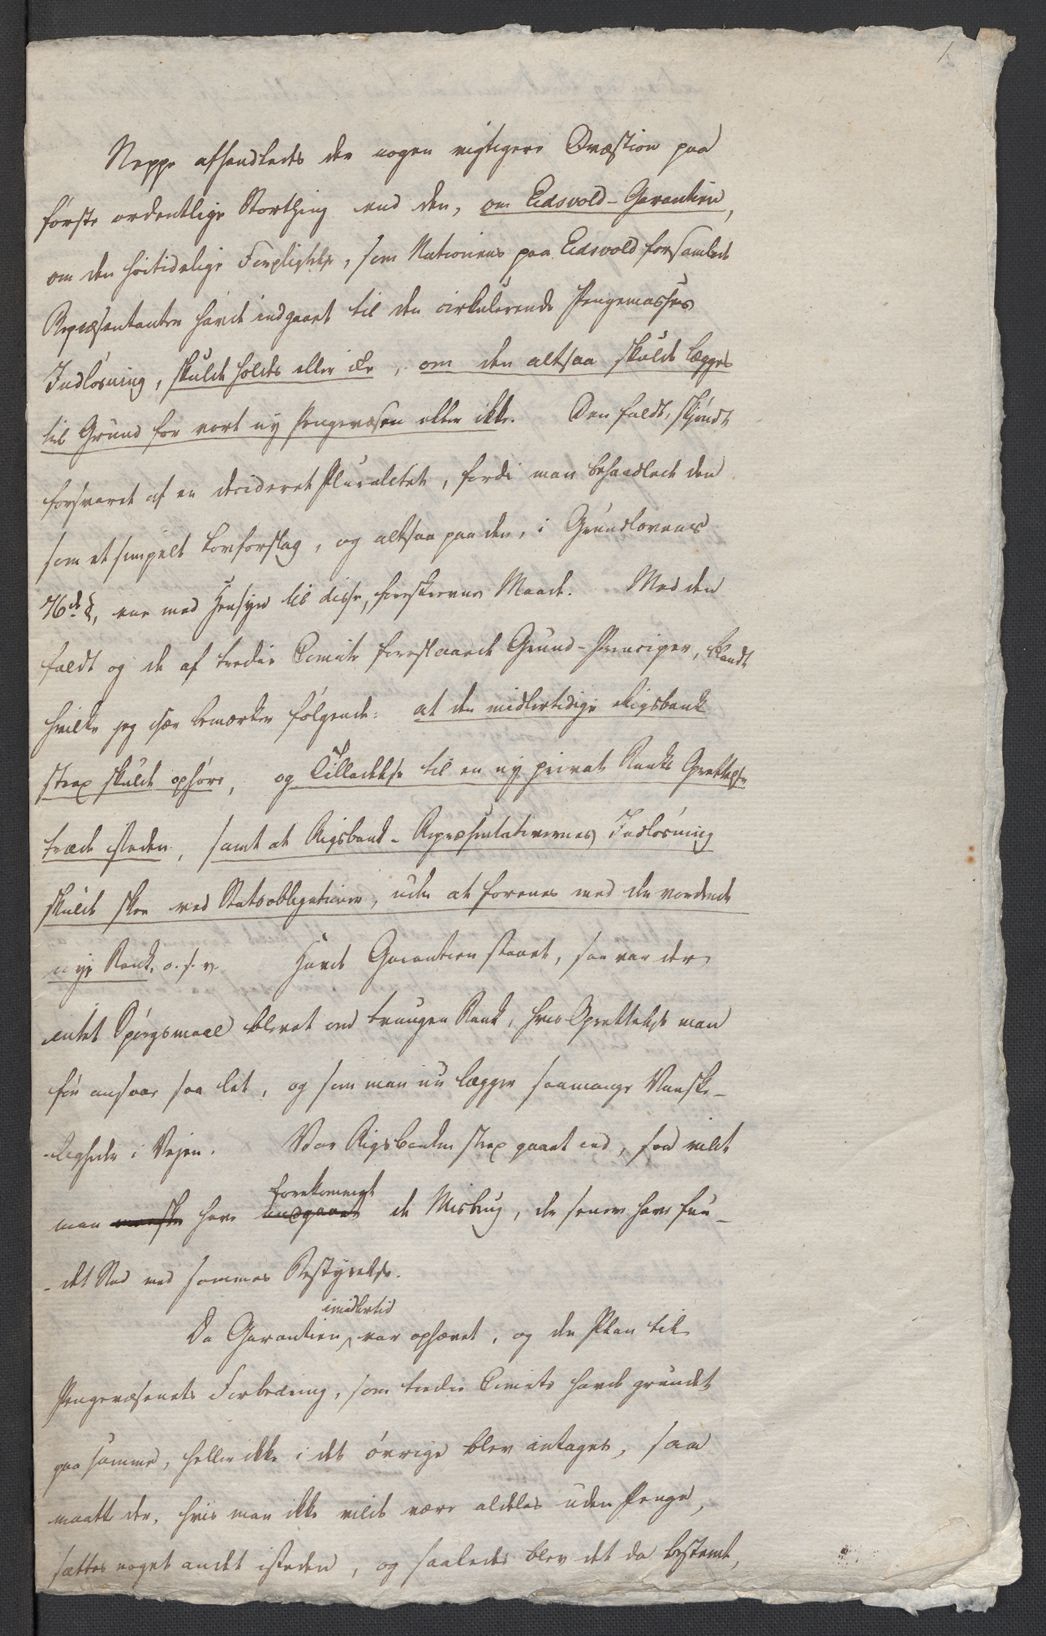 1.
Neppe afhandledes der nogen vigtigere Qvæstion paa
første ordentlige Storthing end den, om Eidsvold-Garantien,
om den høitidelige Forpligtelse, som Nationens paa Eidsvold forsamlede
Repræsentanter havde indgaaet til den cirkulerende Pengemasses
Indløsning, skulde holdes eller ei, om den altsaa skulde lægges
til Grund for vort ny Pengevæsen eller ikke. Den faldt, skjøndt
forsvaret af en decideret Pluralitet, fordi man behandlede den
som et simpelt Lovforslag, og altsaa paa den, i Grundlovens
76de §, med Hensyn til disse, foreskrevne Maade. Med den
faldt og de af tredie Comite foreslaaede Grund-Principer, blandt
hvilke jeg især bemærker følgende: at den midlertidige Rigsbank
strax skulde ophøre, og Tilladelse til en ny privat Banks Oprettelse
træde isteden, samt at Rigsbank-Repræsentativernes Indløsning
skulde skee ved Statsobligationer, uden at forenes med den vordende
nye Bank, o.s.v. Havde Garantien staaet, saa var der
intet Spørgsmaal blevet om tvungen Bank, hvis Oprettelse man
før ansaae saa let, og som man nu lægger saamange Vanske-
-ligheder i Vejen. Var Rigsbanken strax gaaet ind, saa vilde
forekommet
man maaske have undgaaet de Misbrug, der senere have fun-
-det Sted ved sammes Bestyrelse.
imidlertid
Da Garantien var ophævet, og den Plan til
Pengevæsenets Forbedring, som tredie Comite havde grundet
paa samme, heller ikke i det øvrige blev antaget, saa
maatte der, hvis man ikke vilde være aldeles uden Penge,
sættes noget andet isteden, og saaledes blev det da bestemt,